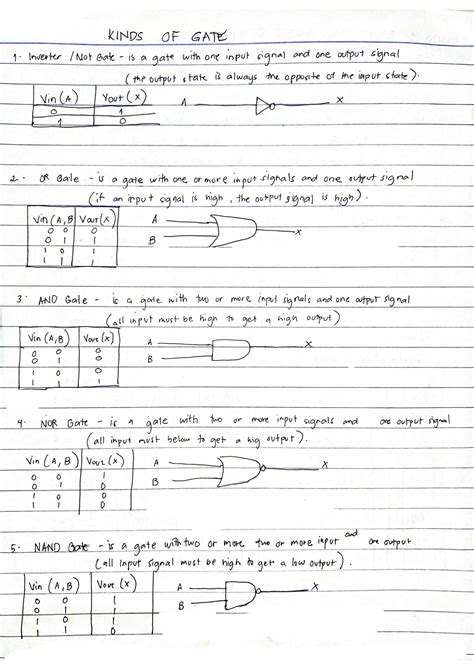 KINDS OF GATE
1. Inverter / Not Gate - is a gate with one input signal and one output signal
(the output state is always the opposite of the input state).
Vin (A) Vout (X)
0 1
1 0
A X
2. OR Gate - is a gate with one or more input signals and one output signal
(if an input signal is high, the output signal is high).
Vin (A,B) Vout (X)
0 0 0
0 1 1
1 0 1
1 1 1
A
B
X
3. AND Gate - is a gate with two or more input signals and one output signal
(all input must be high to get a high output)
Vin (A,B) Vout (X)
0 0 0
0 1 0
1 0 0
1 1 1
A
B
X
4. NOR Gate - is a gate with two or more input signals and one output signal
(all input must below to get a hig output).
Vin (A,B) Vout (X)
0 0 1
0 1 0
1 0 0
1 1 0
A
B
X
5. NAND Gate - is a gate with two or more two or more input and one output
(all input signal must be high to get a low output).
Vin (A,B) Vout (X)
0 0 1
0 1 1
1 0 1
1 1 0
A
B
X